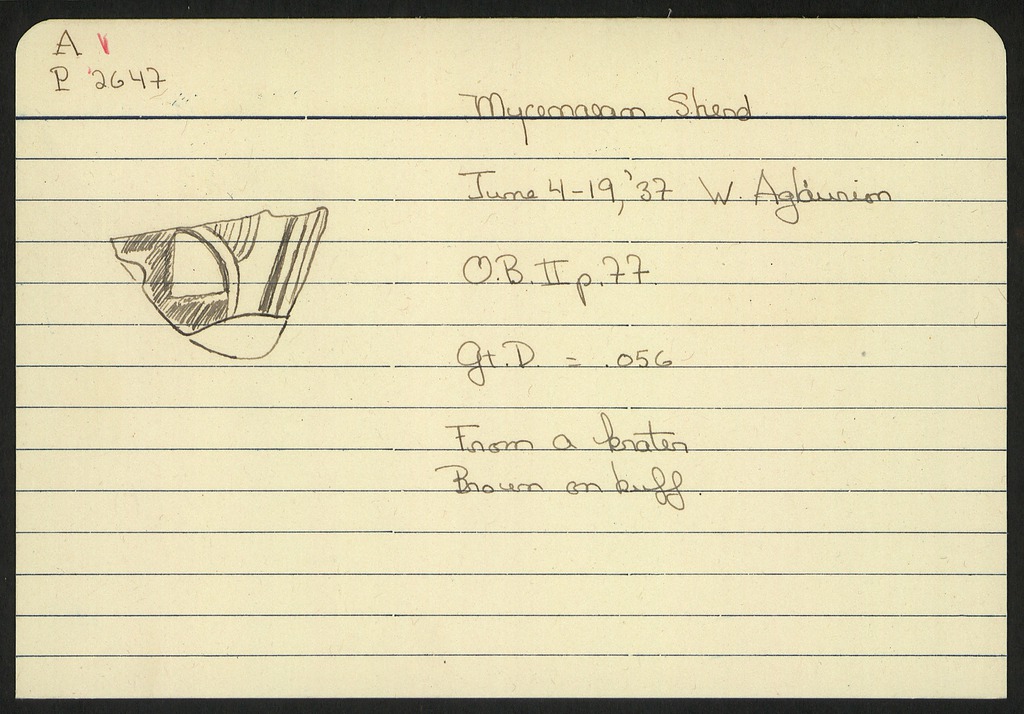 A
P 2647
Mycenaean Sherd
June 4-19, '37 W. Aglaurion
O.B. II p. 77.
Gt. D. = .056
From a krater
Brown on buff.